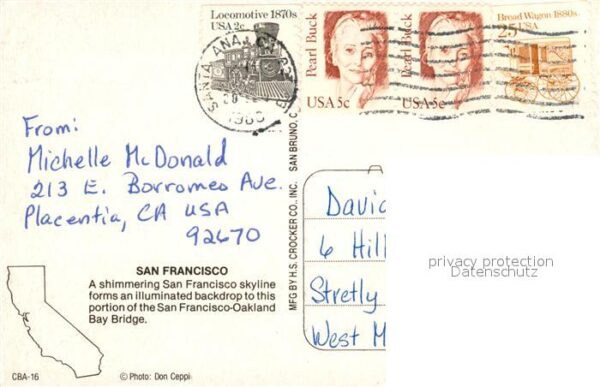 Locomotive 1870s
USA 2c
Pearl Buck
USA 5c
Pearl Buck
USA 5c
Bread Wagon 1880s
25 USA
SANTA ANA, CA
From:
Michelle McDonald
213 E. Borromeo Ave.
Placentia, CA USA
92670
SAN FRANCISCO
A shimmering San Francisco skyline
forms an illuminated backdrop to this
portion of the San Francisco-Oakland
Bay Bridge.
CBA-16
© Photo: Don Ceppi
MFG BY H.S. CROCKER CO., INC. SAN BRUNO, C
David
6 Hill
Stretly
West M
privacy protection
Datenschutz